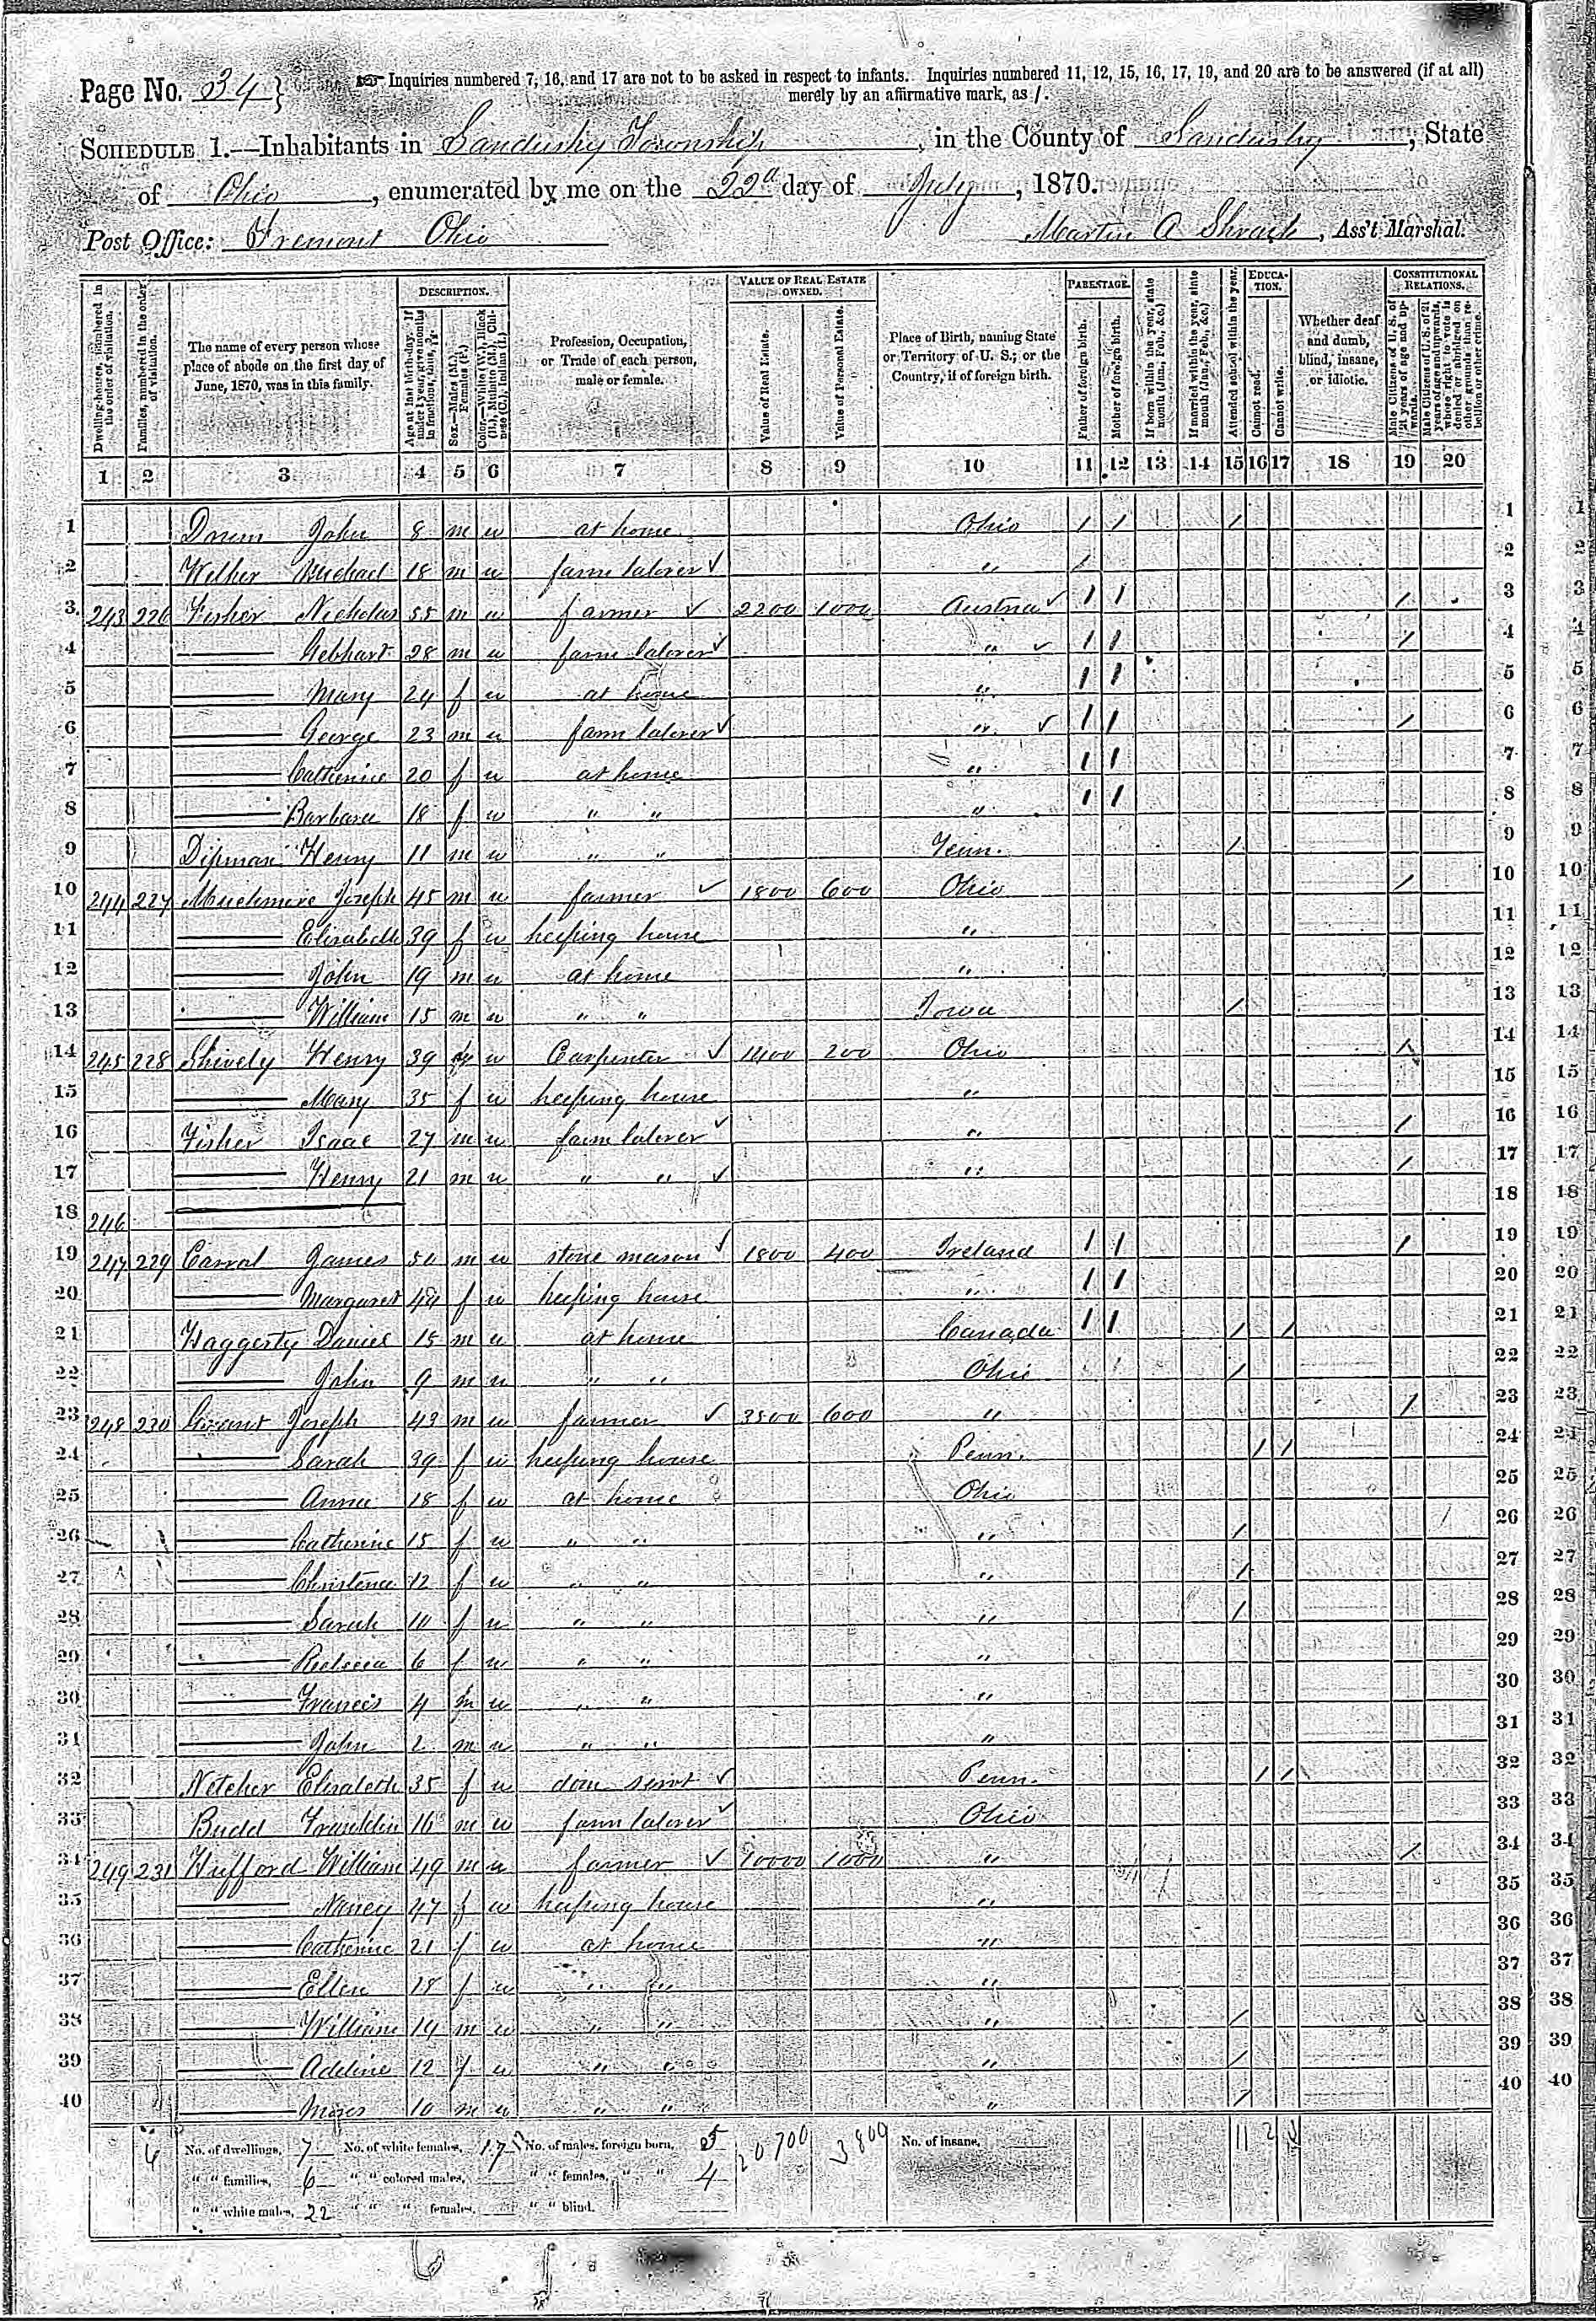 Page No. 34 } Inquiries numbered 7, 16, and 17 are not to be asked in respect to infants. Inquiries numbered 11, 12, 15, 16, 17, 19, and 20 are to be answered (if at all)
merely by an affirmative mark, as /.
SCHEDULE 1.—Inhabitants in Sandusky Township, in the County of Sandusky, State
of Ohio, enumerated by me on the 22d day of July, 1870.
Post Office: Fremont Ohio Martin A , Ass't Marshal.
Dwelling-houses, numbered in the order of visitation.
Families, numbered in the order of visitation.
The name of every person whose place of abode on the first day of June, 1870, was in this family.
DESCRIPTION.
Age at last birth-day. If under 1 year, give months in fractions, thus, 3/12.
Sex.—Males (M.), Females (F.)
Color.—White (W.), Black (B.), Mulatto (M.), Chinese (C.), Indian (I.)
Profession, Occupation, or Trade of each person, male or female.
VALUE OF REAL ESTATE OWNED.
Value of Real Estate.
Value of Personal Estate.
Place of Birth, naming State or Territory of U. S.; or the Country, if of foreign birth.
PARENTAGE.
Father of foreign birth.
Mother of foreign birth.
If born within the year, state month (Jan., Feb., &c.)
If married within the year, state month (Jan., Feb., &c.)
EDUCATION.
Attended school within the year.
Cannot read.
Cannot write.
Whether deaf and dumb, blind, insane, or idiotic.
CONSTITUTIONAL RELATIONS.
Male Citizens of U. S. of 21 years of age and upwards.
Male Citizens of U. S. of 21 years of age and upwards, whose right to vote is denied or abridged on other grounds than rebellion or other crime.
1 2 3 4 5 6 7 8 9 10 11 12 13 14 15 16 17 18 19 20
1 John 8 m w at home Ohio / / / 1
2 Michael 18 m w farm laborer ✓ " / 2
3 243 226 Fisher Nicholas 55 m w farmer ✓ 2200 1000 Austria ✓ / / / 3
4 —— Gebhart 28 m w farm laborer ✓ " ✓ / / / 4
5 —— Mary 24 f w at home " / / 5
6 —— George 23 m w farm laborer ✓ " ✓ / / / 6
7 —— Catherine 20 f w at home " / / 7
8 —— Barbara 18 f w " " " / / 8
9 Dipman Henry 11 m w " " / 9
10 244 227 Muchmore Joseph 45 m w farmer ✓ 1800 600 Ohio / 10
11 —— Elisabeth 39 f w keeping house " 11
12 —— John 19 m w at home " 12
13 —— William 15 m w " " Iowa / 13
14 245 228 Shively Henry 39 m w Carpenter ✓ 1400 200 Ohio / 14
15 —— Mary 35 f w keeping house " 15
16 Fisher Isaac 27 m w farm laborer ✓ " / 16
17 —— Henry 21 m w " " ✓ " / 17
18 246 —— 18
19 247 229 Carral James 50 m w stone mason ✓ 1800 400 Ireland / / / 19
20 —— Margaret 44 f w keeping house " / / 20
21 Haggerty Daniel 15 m w at home Canada / / / / 21
22 —— John 9 m w " " Ohio / / / 22
23 248 230 Joseph 43 m w farmer ✓ 3500 600 " / 23
24 —— Sarah 39 f w keeping house Penn. / / 24
25 —— Anna 18 f w at home Ohio 25
26 —— Catherine 15 f w " " " / 26
27 —— Christena 12 f w " " " / 27
28 —— Sarah 10 f w " " " / 28
29 —— Rebecca 6 f w " " " 29
30 —— Francis 4 m w " " " 30
31 —— John 2 m w " " " 31
32 Netcher Elisabeth 35 f w dom servt ✓ Penn. / / 32
33 Budd Franklin 16 m w farm laborer ✓ Ohio 33
34 249 231 Hufford William 49 m w farmer ✓ 10000 1000 " / 34
35 —— Nancy 47 f w keeping house " 35
36 —— Catherine 21 f w at home " 36
37 —— Ellen 18 f w " " " 37
38 —— William 14 m w " " " / 38
39 —— Adeline 12 f w " " " / 39
40 —— Moses 10 m w " " " / 40
6 No. of dwellings, 7 No. of white females, 17 No. of males, foreign born, 5 20700 3800 No. of insane, 11 2
" " families, 6 " " colored males, " " females, " " 4
" " white males, 22 " " " females, " " blind.